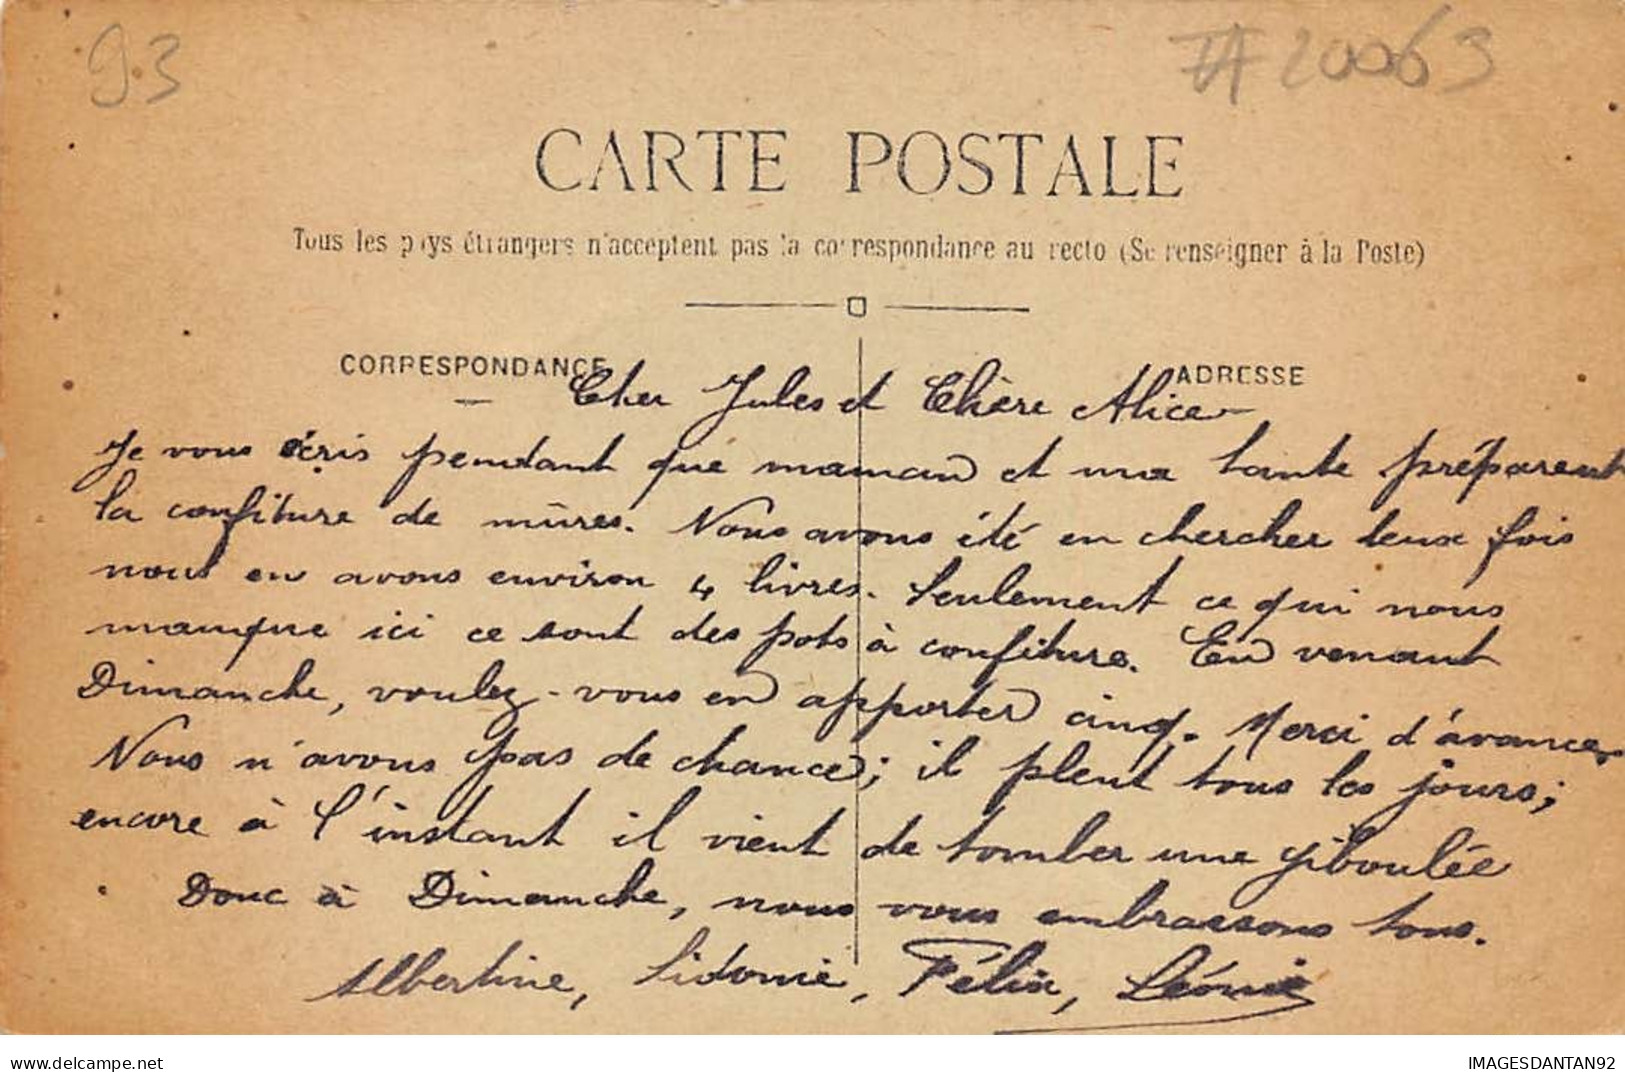 93
20063
CARTE POSTALE
Tous les pays étrangers n'acceptent pas la correspondance au recto (Se renseigner à la Poste)
CORRESPONDANCE
ADRESSE
Cher Jules et Chère Alice
Je vous écris pendant que maman et ma tante préparent
la confiture de mûres. Nous avons été en chercher deux fois
nous en avons environ 4 livres. Seulement ce qui nous
manque ici ce sont des pots à confiture. En venant
Dimanche, voulez-vous en apporter cinq. Merci d'avance
Nous n'avons pas de chance; il pleut tous les jours;
encore à l'instant il vient de tomber une giboulée
Donc à Dimanche, nous vous embrassons tous.
Albertine, Sidonie, Félix, Léonie
delcampe.net
IMAGESDANTAN92